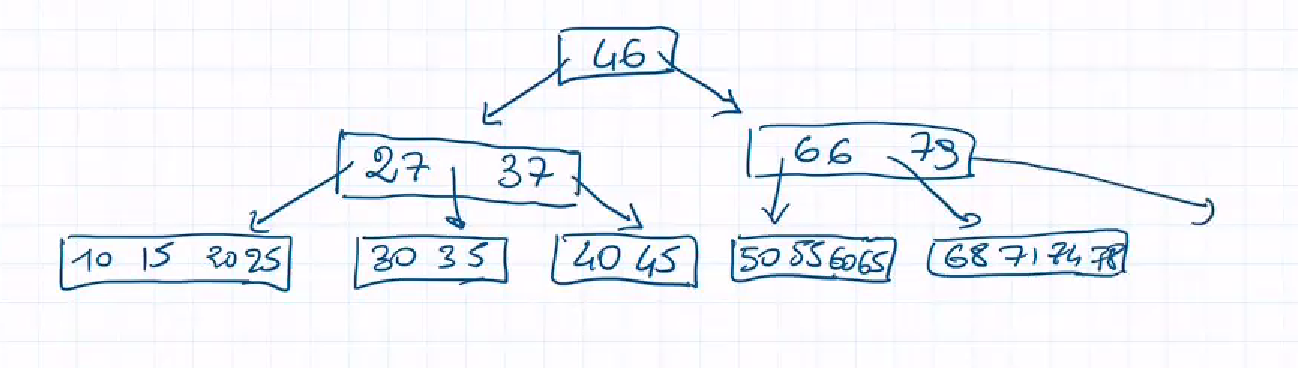 46
27 37
66 79
10 15 20 25
30 35
40 45
50 55 60 65
68 71 74 78